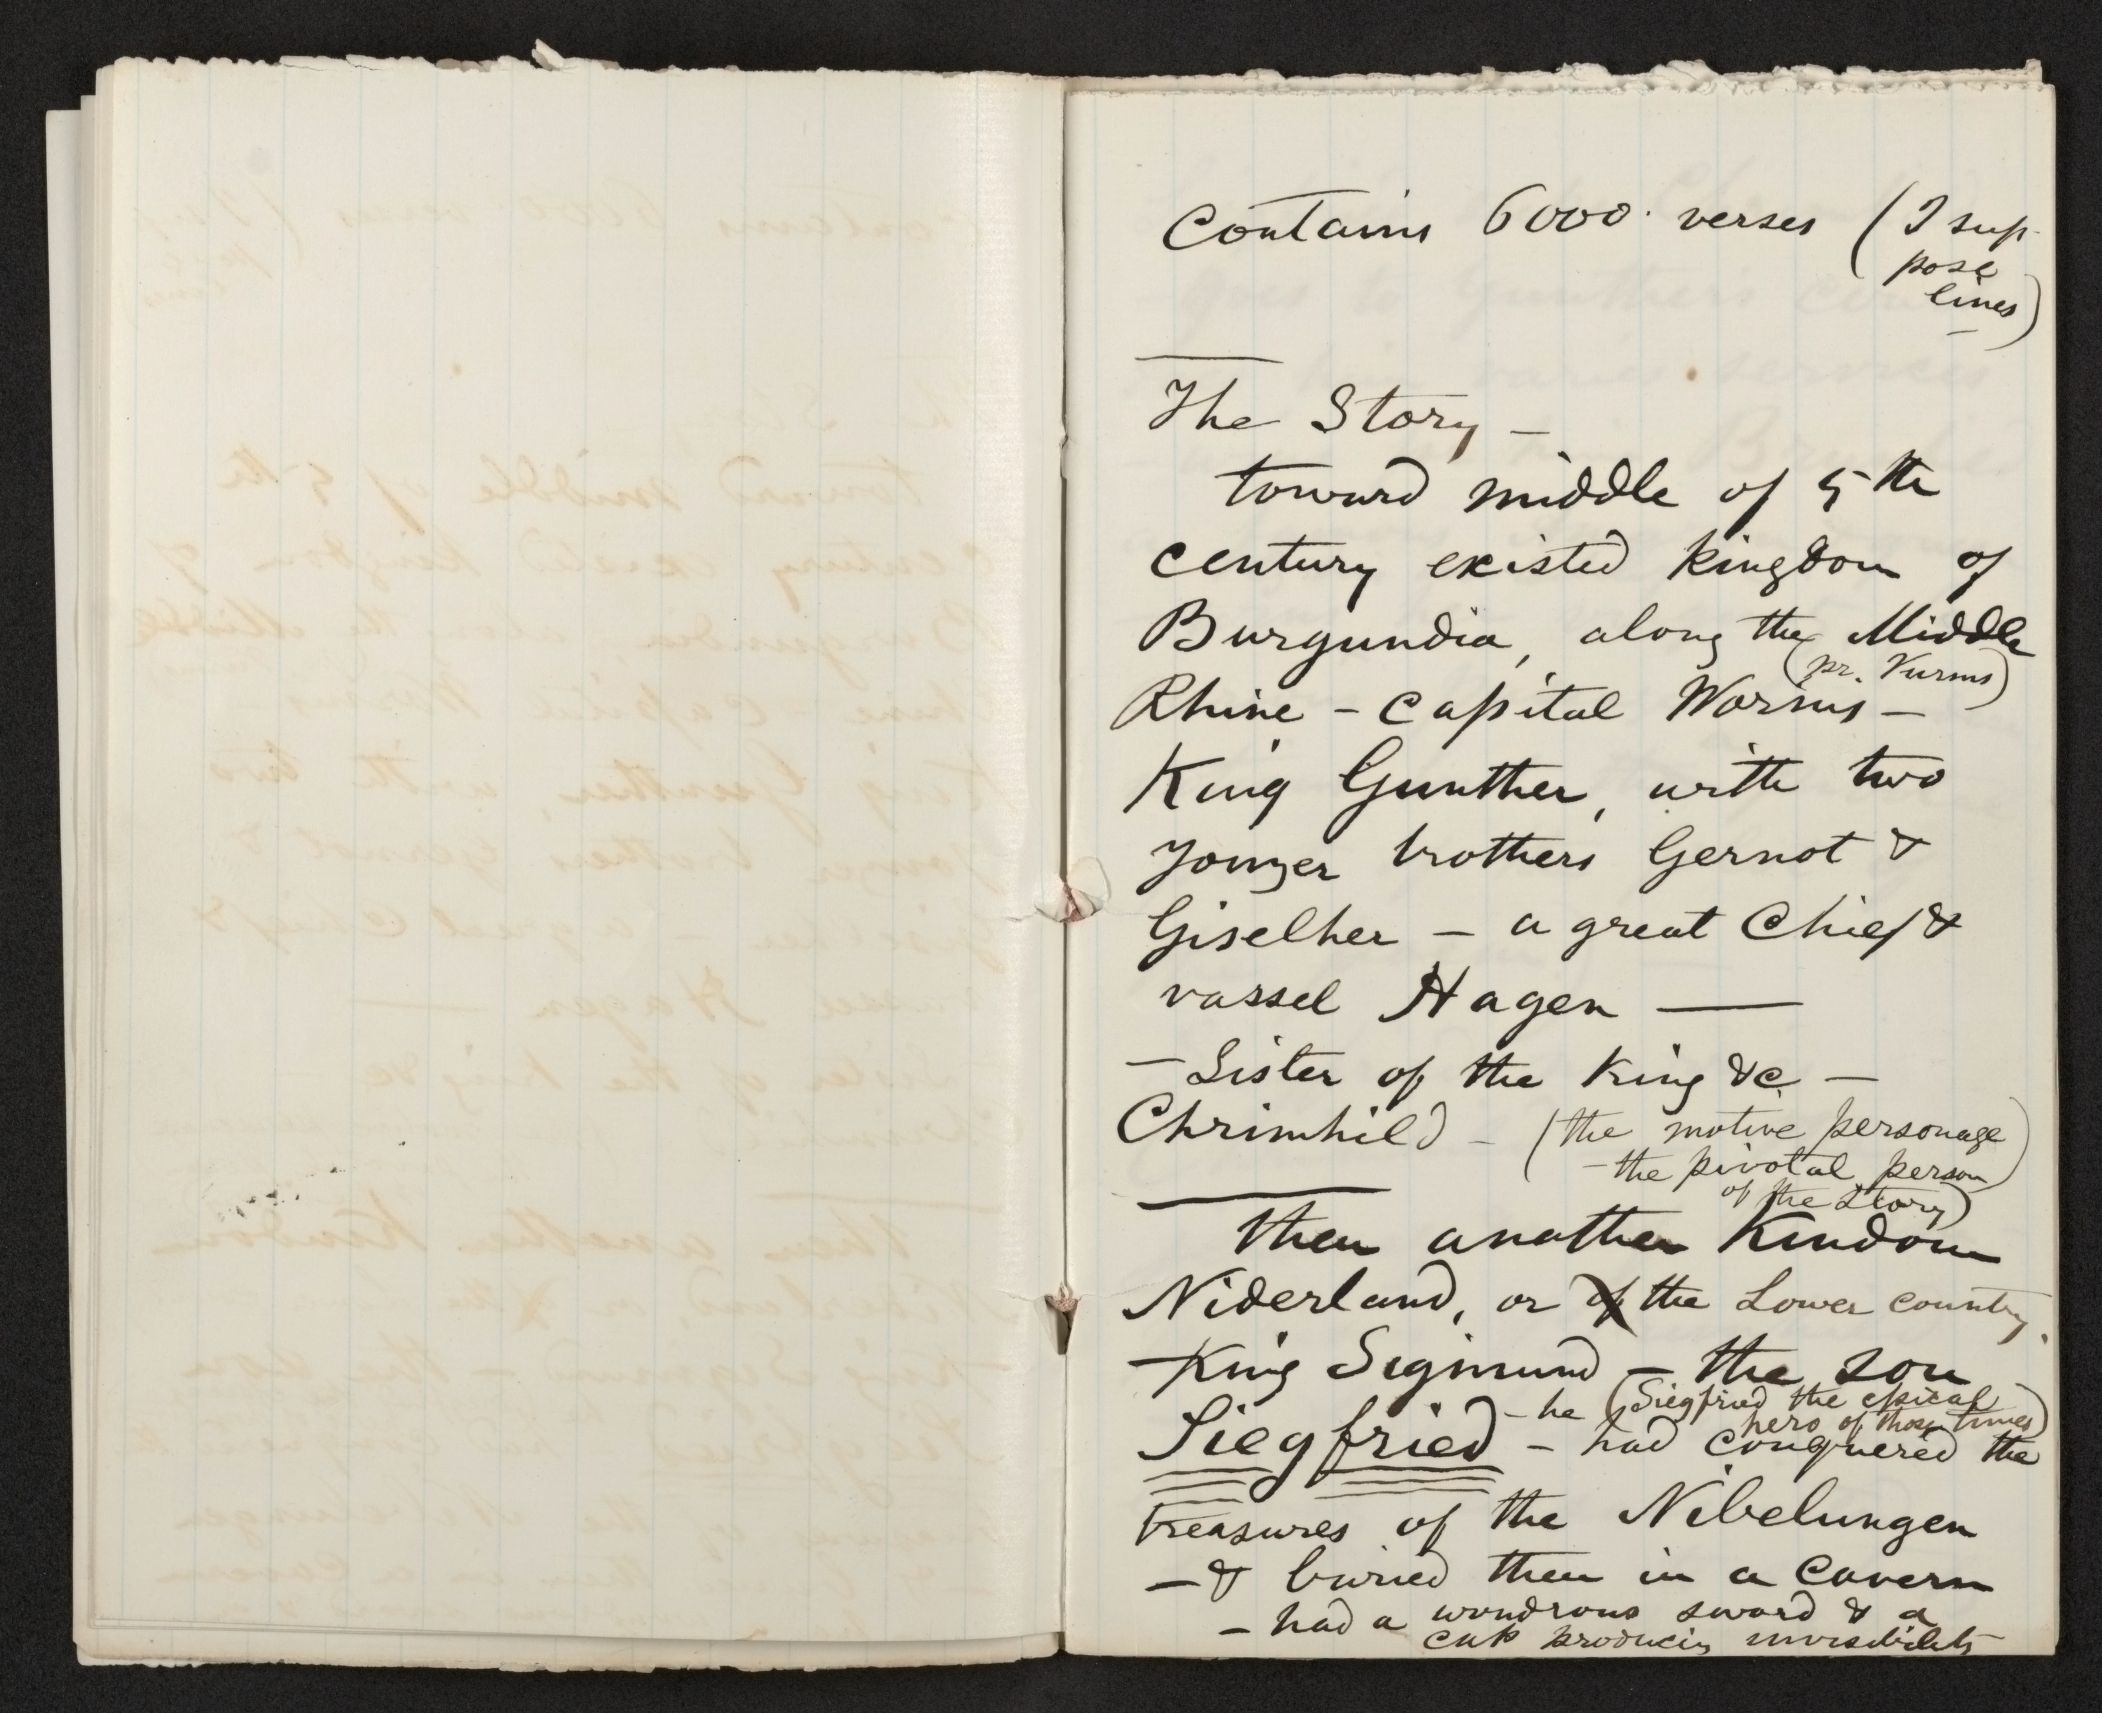 Contains 6000 verses (I sup-
pose
lines)
The Story –
toward middle of 5th
century existed kingdom of
Burgundia, along the Middle
(pr. Vurms)
Rhine – capital Worms –
King Gunther, with two
yonger brothers Gernot &
Giselher – a great Chief &
vassel Hagen —
– Sister of the King &c –
Chrimhild – (the motive personage
– the pivotal person
of the Story)
Then another Kindom
Niderland, or of the Lower country.
King Sigmund – the son
– he (Siegfried the epical
hero of those times)
Siegfried – had conquered the
treasures of the Nibelungen
– & buried them in a cavern
– had a wondrous sword & a
cap producing invisibility